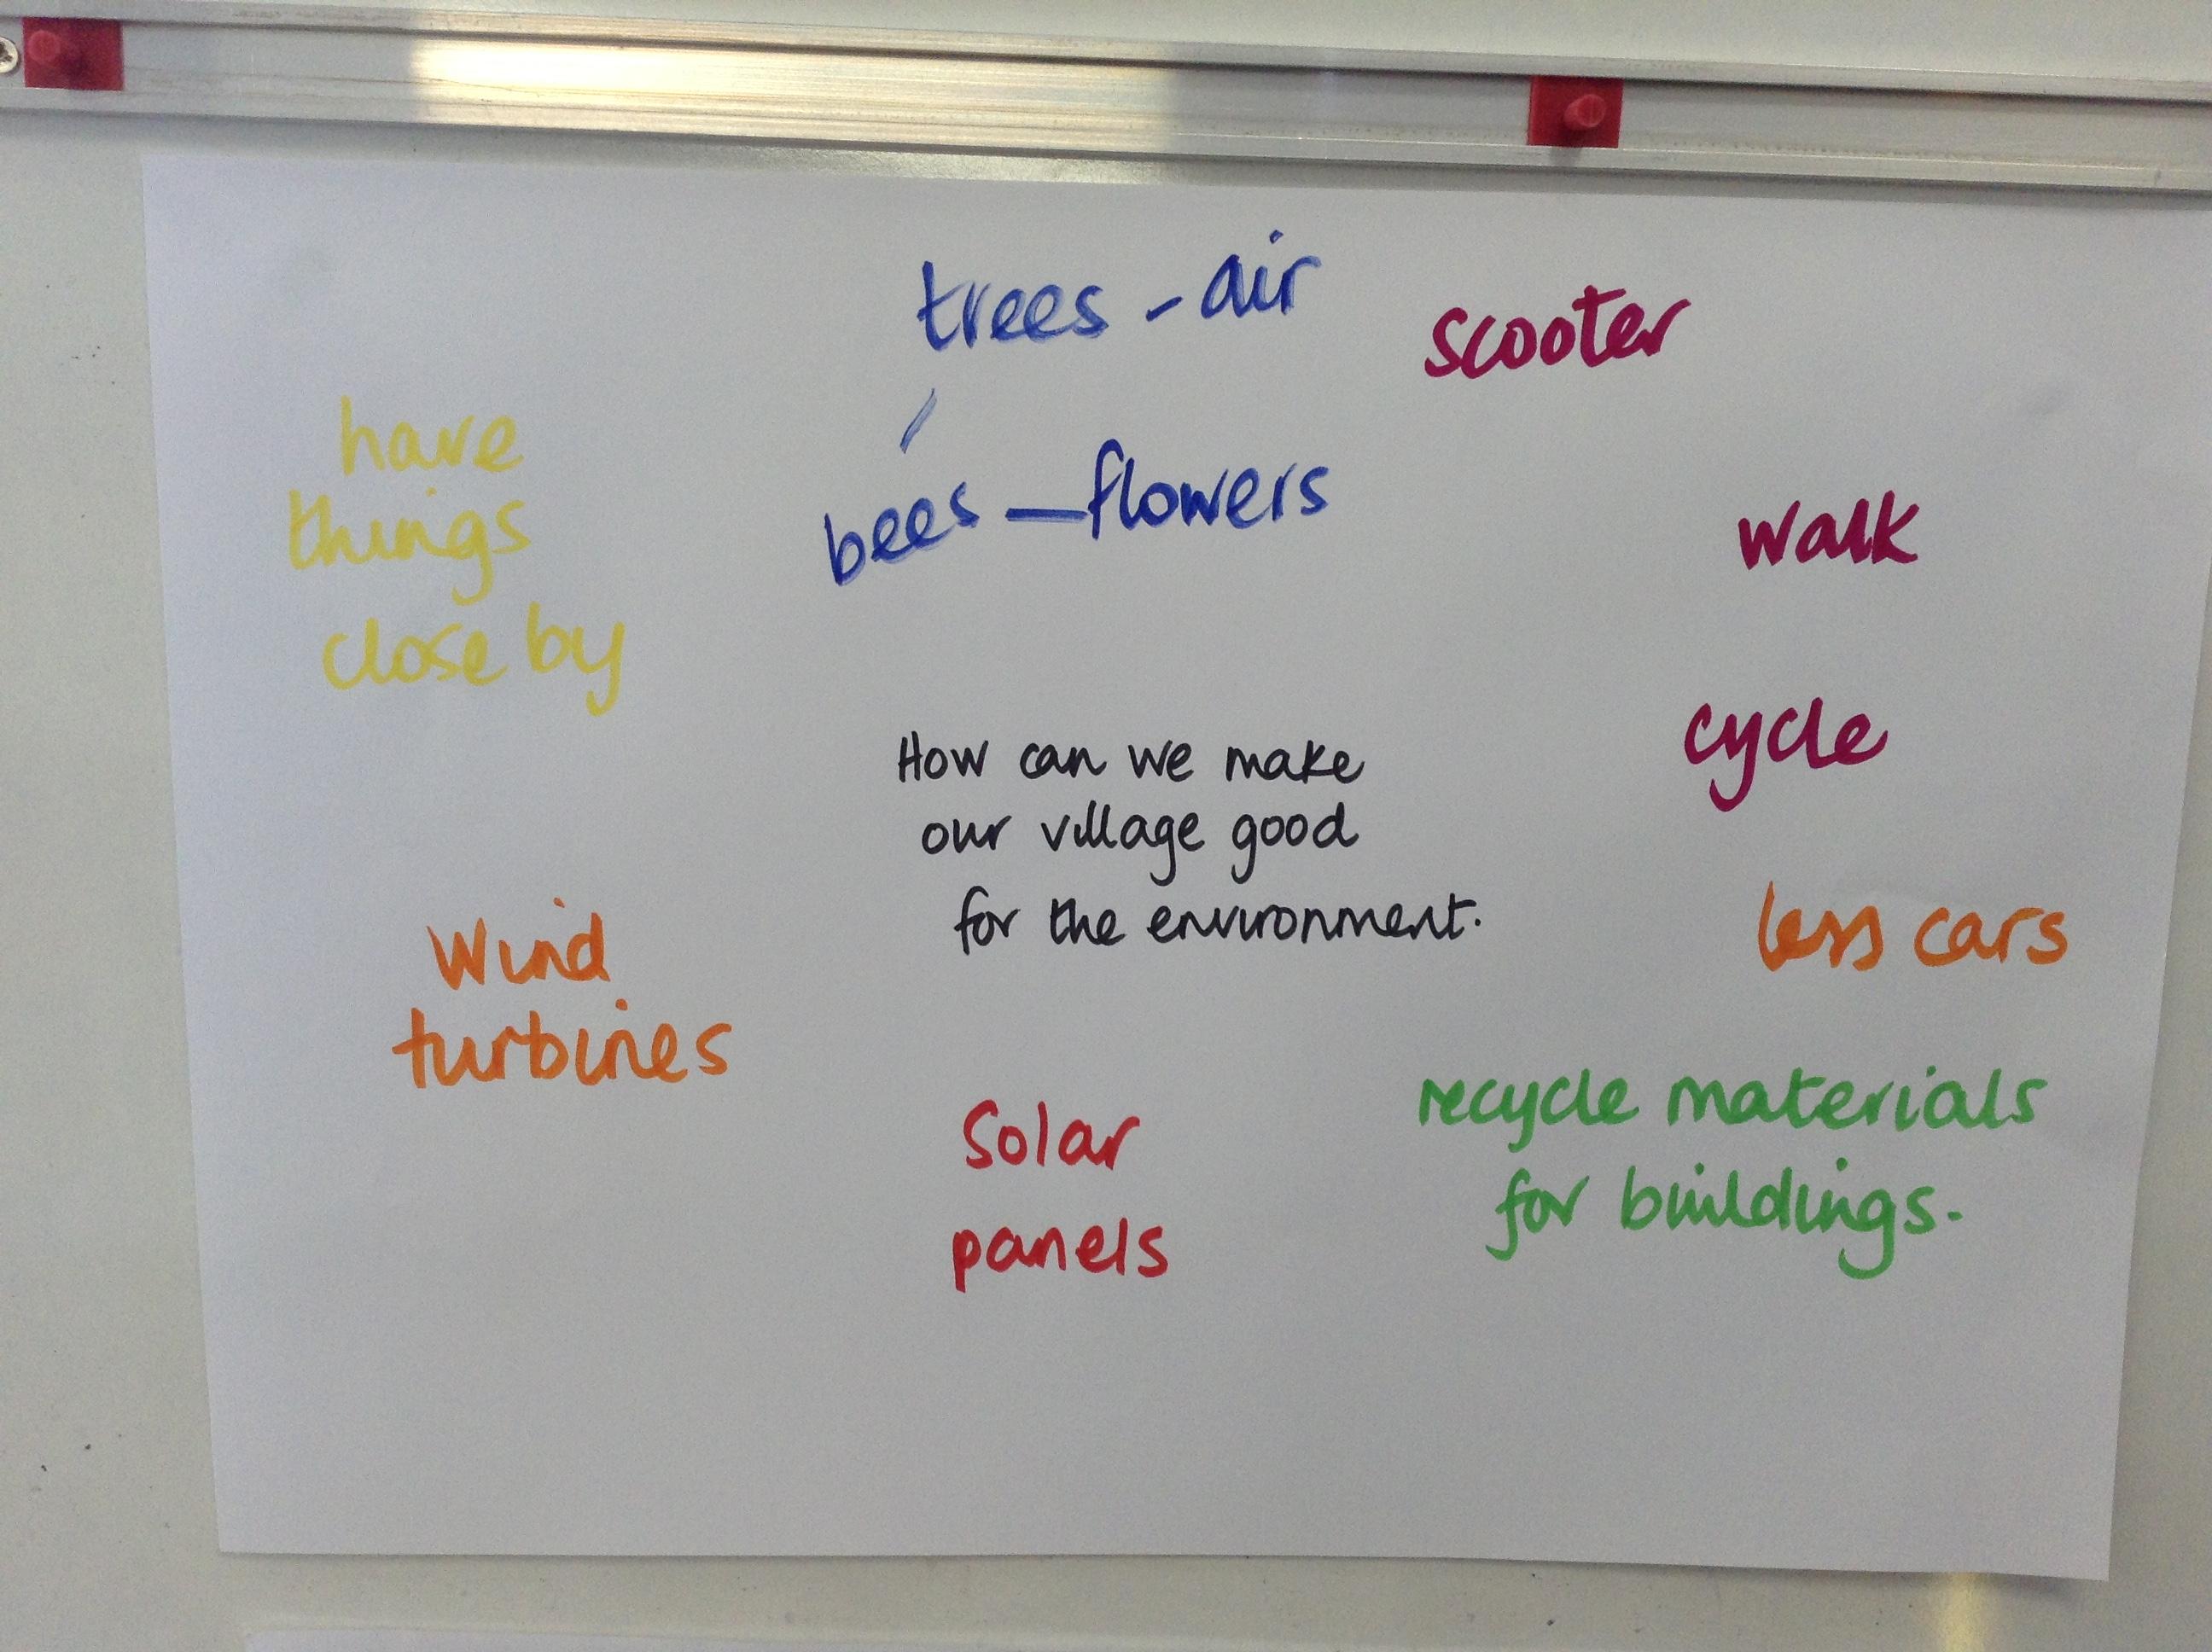 trees - air
scooter
have
things
close by
bees - flowers
walk
cycle
How can we make
our village good
for the environment.
less cars
Wind
turbines
Solar
panels
recycle materials
for buildings.